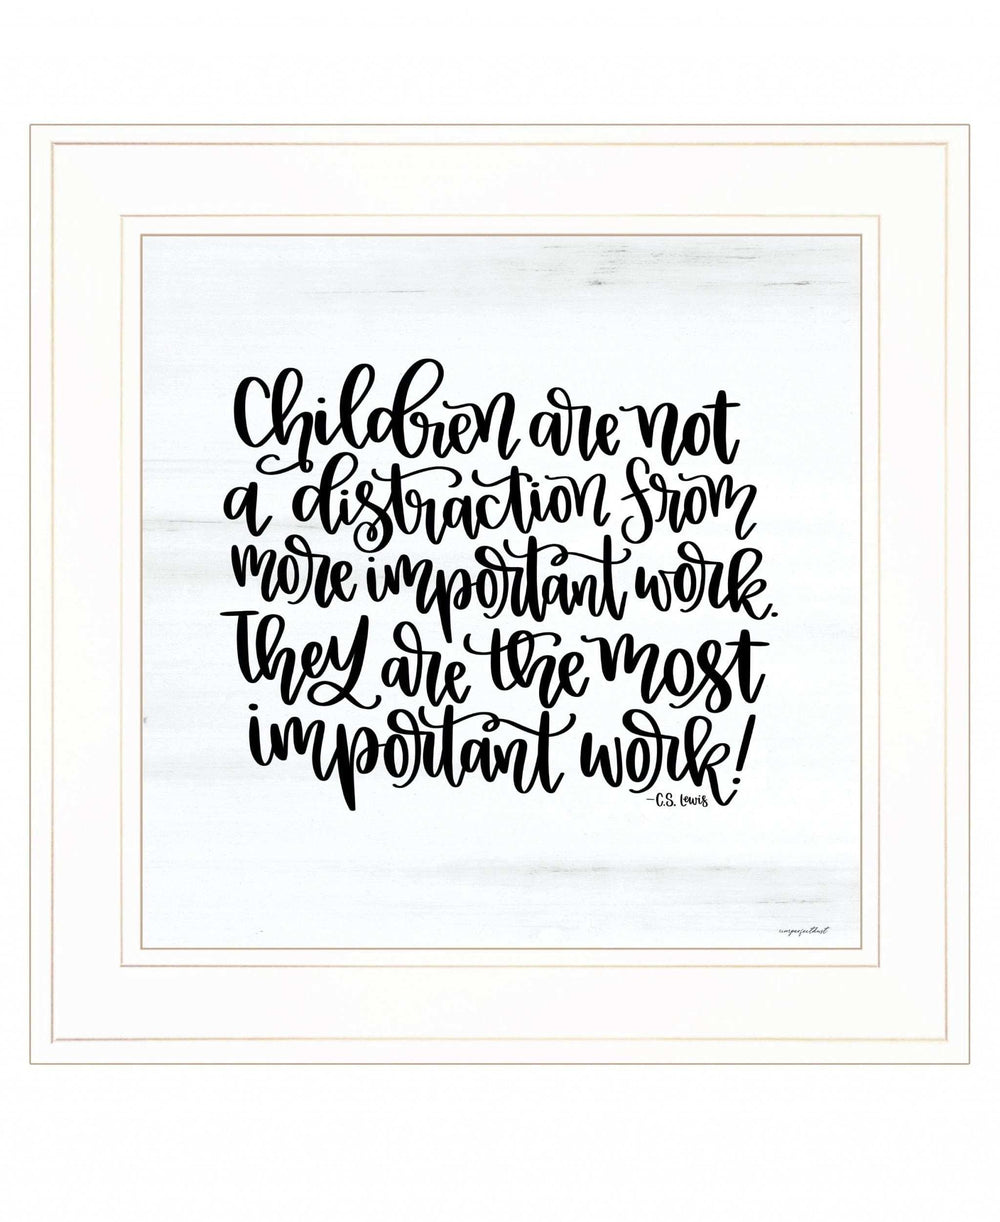 Children are not
a distraction from
more important work.
They are the most
important work!
–C.S. Lewis
imperfectdust